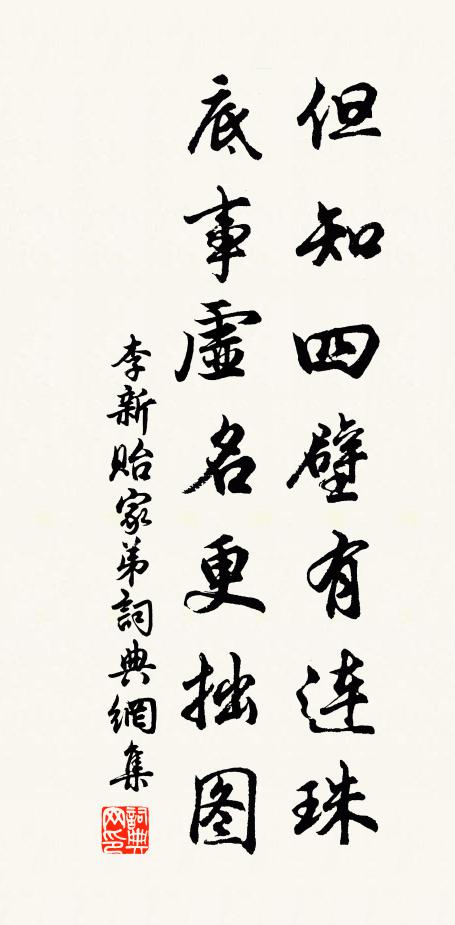 但知四壁有连珠
底事虚名更拙图
李新贻家弟詞典網集
詞典网印